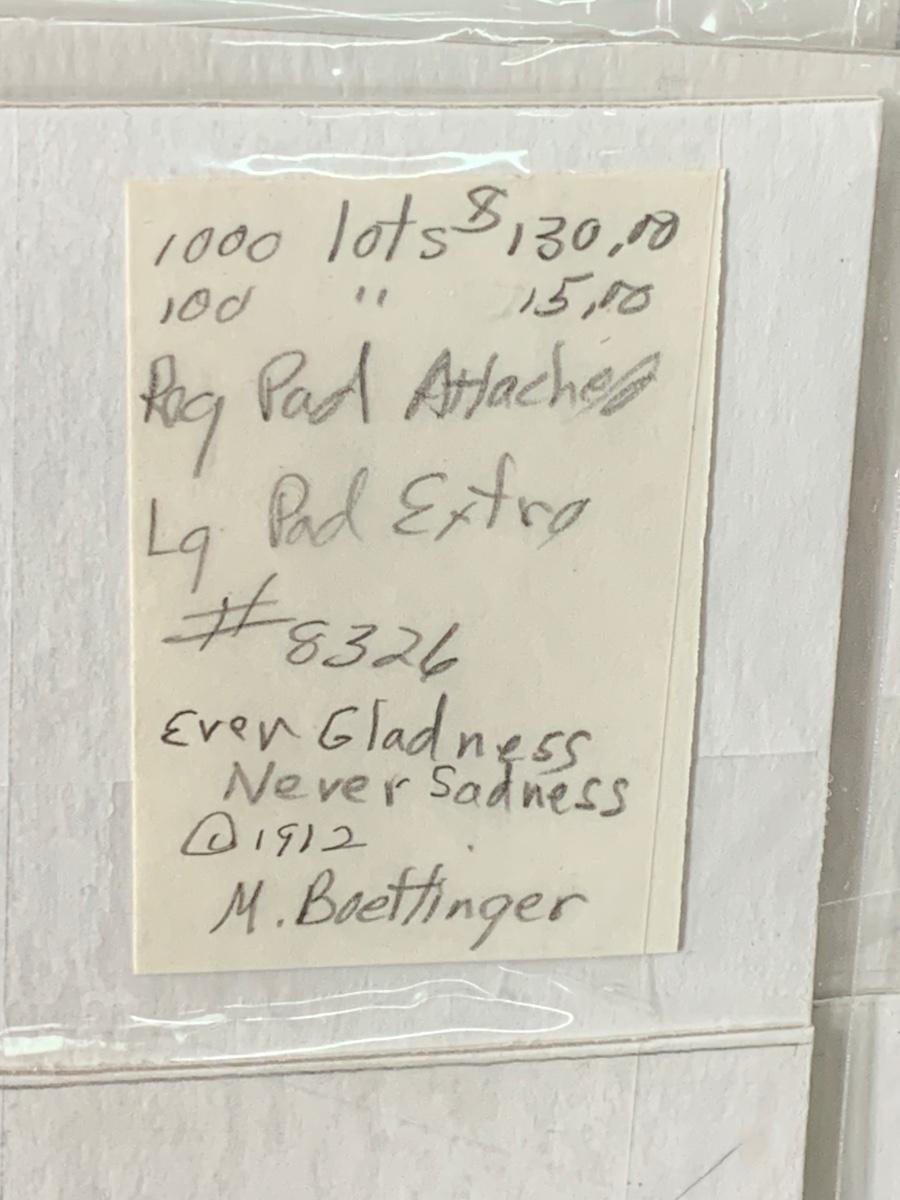 1000 lots $130.00
100 " 15.00
Reg Pad Attached
Lg Pad Extra
#8326
Ever Gladness
Never Sadness
©1912
M. Boettinger